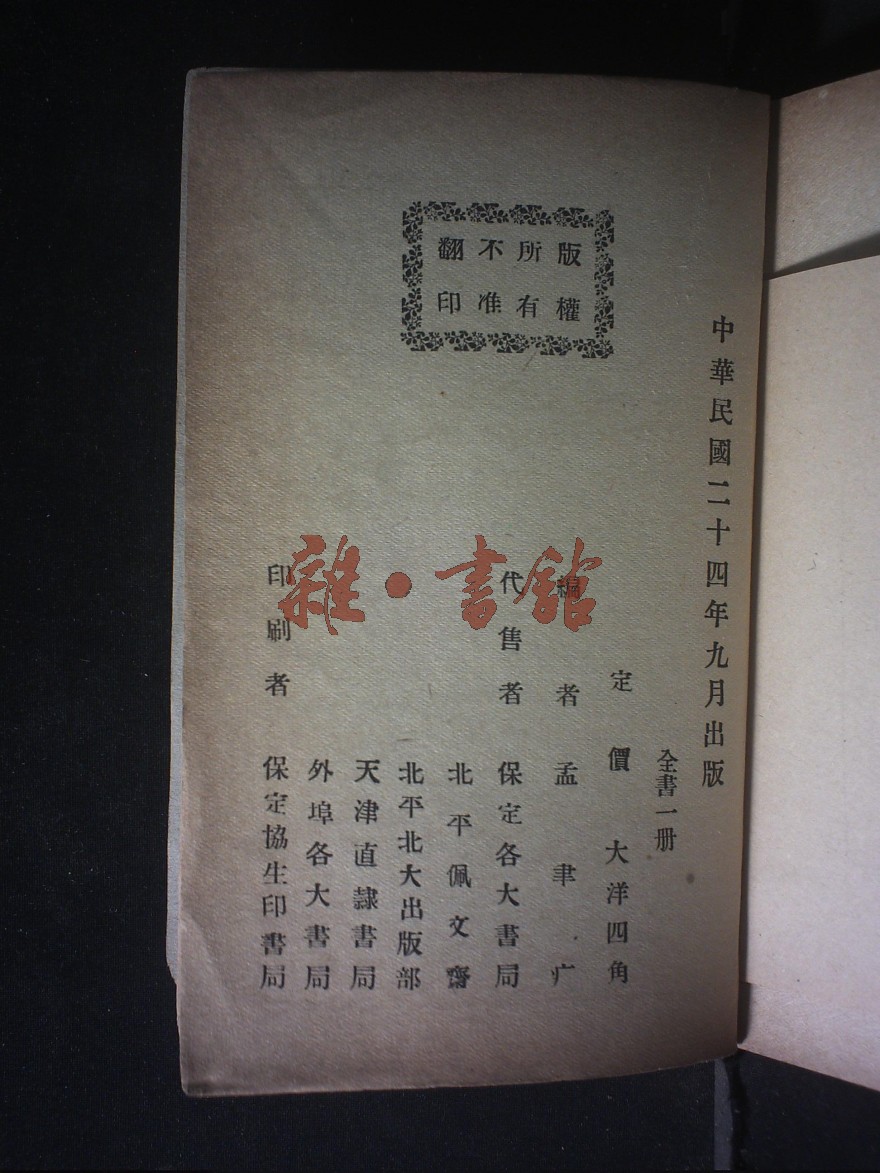 版權所有不准翻印
中華民國二十四年九月出版
全書一册
定價 大洋四角
編者 孟聿疒
代售者 保定各大書局
北平佩文齋
北平北大出版部
天津直隸書局
外埠各大書局
印刷者 保定協生印書局
雜·書館